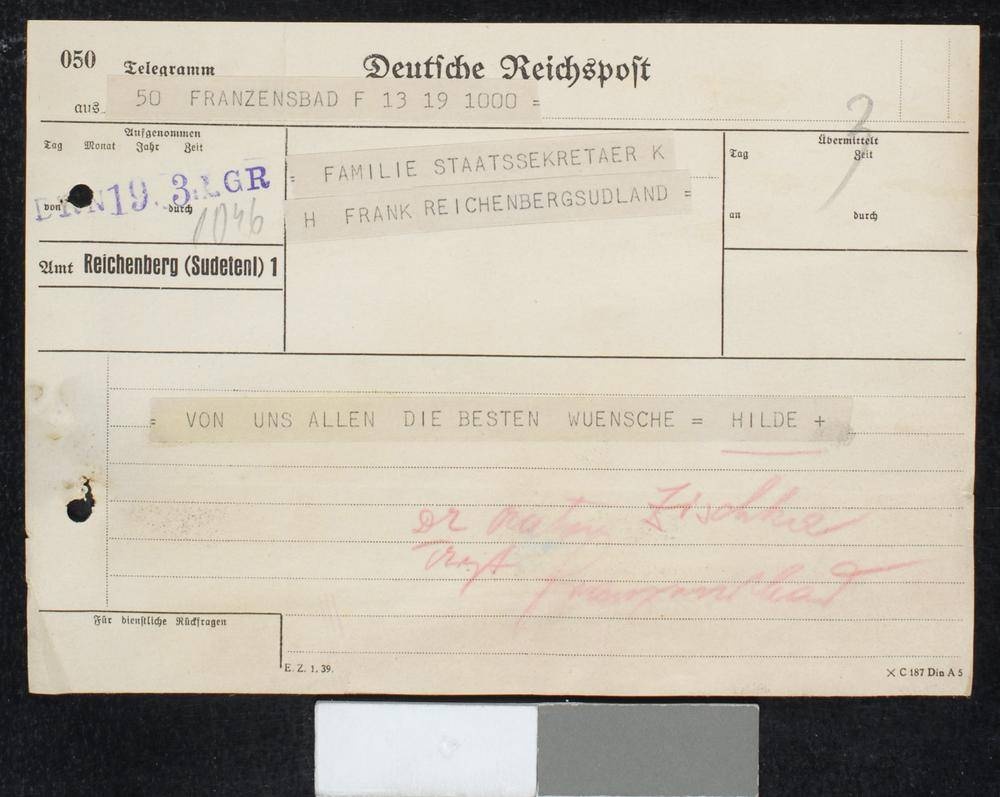 050
Telegramm
Deutsche Reichspost
aus
50 FRANZENSBAD F 13 19 1000 =
Aufgenommen
Tag Monat Jahr Zeit
19. 3. GR
von durch
1046
Amt Reichenberg (Sudetenl) 1
= FAMILIE STAATSSEKRETAER K
H FRANK REICHENBERGSUDLAND =
Übermittelt
Tag Zeit
an durch
= VON UNS ALLEN DIE BESTEN WUENSCHE = HILDE +
Zischka
Für dienstliche Rückfragen
E. Z. 1. 39.
C 187 Din A 5